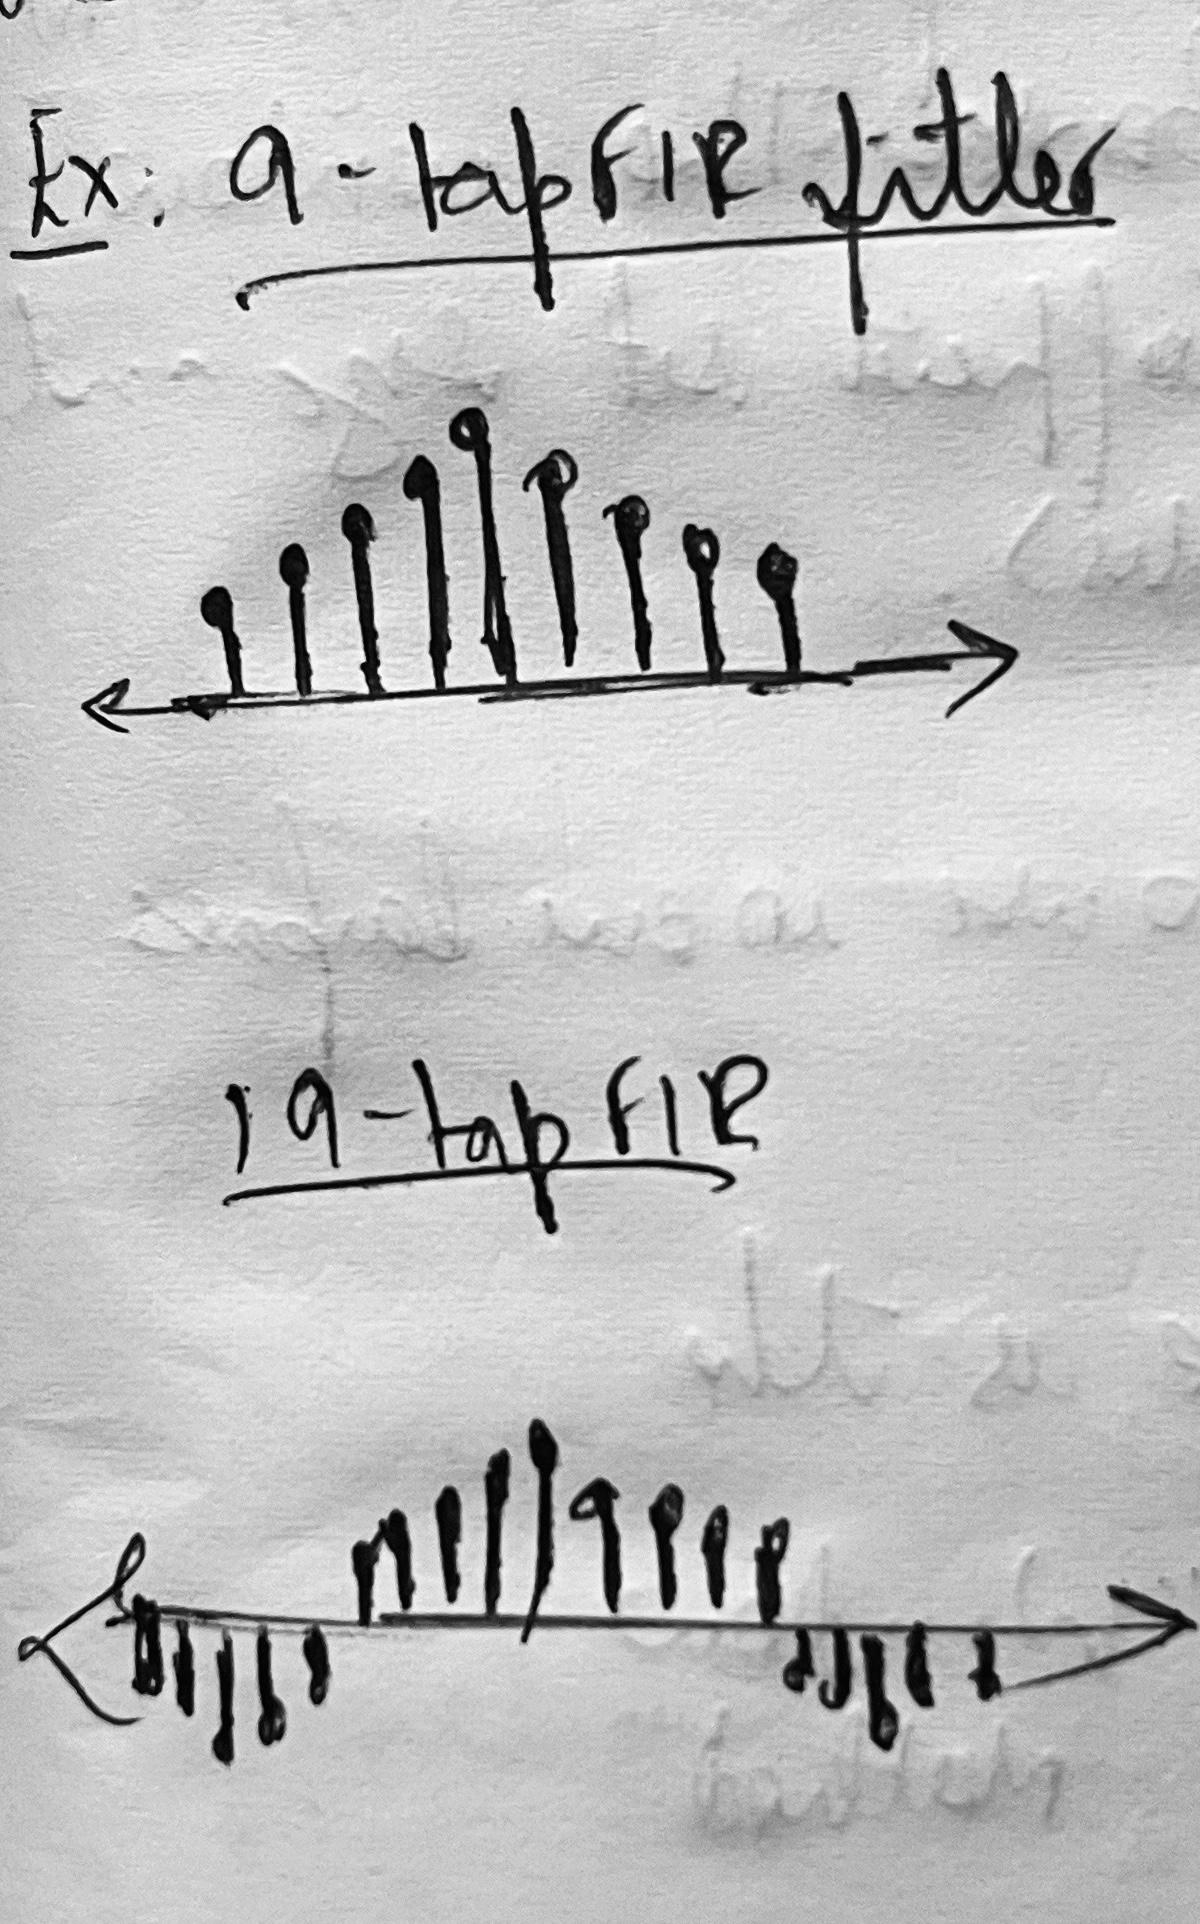 Ex: 9-tap FIR fitler
19-tap FIR